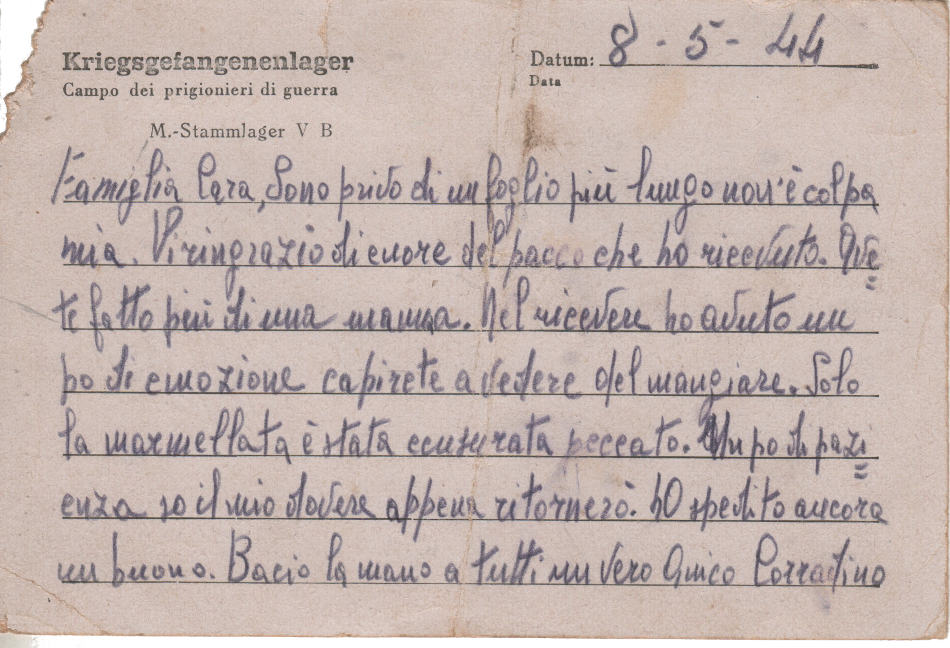 Kriegsgefangenenlager
Campo dei prigionieri di guerra
M.-Stammlager V B
Datum: 8 - 5 - 44
Data
Famiglia Cara, Sono privo di un foglio più lungo non è colpa
mia. Vi ringrazio di cuore del pacco che ho ricevuto. Ave=
te fatto più di una mamma. Nel ricevere ho avuto un
po di emozione capirete a vedere del mangiare. Solo
la marmellata è stata peccato. Un po di pazi=
enza so il mio dovere appena ritornerò. ho spedito ancora
un buono. Bacio la mano a tutti un vero Amico Corradino